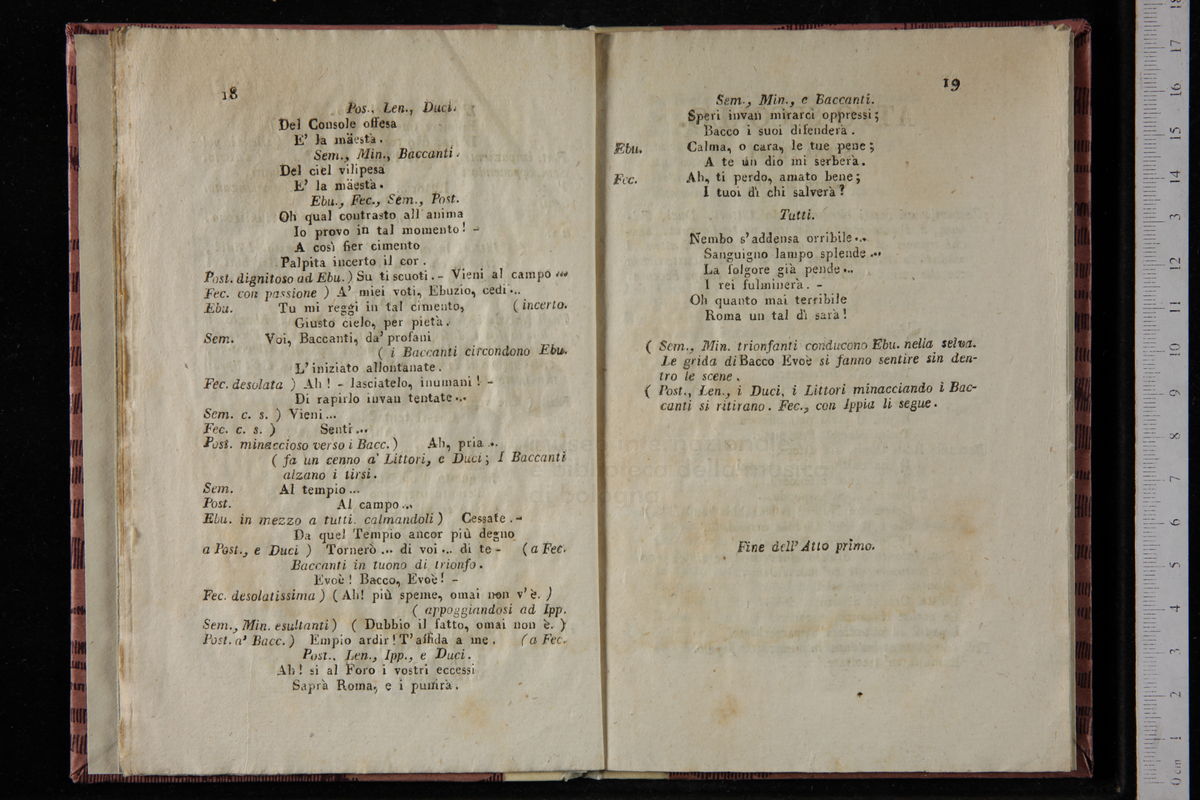 18
Pos., Len., Duci.
Del Console offesa
E' la mäestà.
Sem., Min., Baccanti.
Del ciel vilipesa
E' la mäestà.
Ebu., Fec., Sem., Post.
Oh qual contrasto all'anima
Io provo in tal momento! -
A così fier cimento
Palpita incerto il cor.
Post. dignitoso ad Ebu. ) Su ti scuoti. - Vieni al campo ...
Fec. con passione ) A' miei voti, Ebuzio, cedi...
Ebu. Tu mi reggi in tal cimento, ( incerto.
Giusto cielo, per pietà.
Sem. Voi, Baccanti, da' profani
( i Baccanti circondono Ebu.
L'iniziato allontanate.
Fec. desolata ) Ah! - lasciatelo, inumani! -
Di rapirlo invan tentate...
Sem. c. s. ) Vieni...
Fec. c. s. ) Senti...
Post. minaccioso verso i Bacc. ) Ah, pria...
( fa un cenno a' Littori, e Duci; I Baccanti
alzano i tirsi.
Sem. Al tempio...
Post. Al campo...
Ebu. in mezzo a tutti. calmandoli ) Cessate. -
Da quel Tempio ancor più degno
a Post., e Duci ) Tornerò ... di voi ... di te - ( a Fec.
Baccanti in tuono di trionfo.
Evoè! Bacco, Evoè! -
Fec. desolatissima ) ( Ah! più speme, omai non v'è. )
( appoggiandosi ad Ipp.
Sem., Min. esultanti ) ( Dubbio il fatto, omai non è. )
Post. a' Bacc. ) Empio ardir! T'affida a me. ( a Fec.
Post., Len., Ipp., e Duci.
Ah! si al Foro i vostri eccessi
Saprà Roma, e i punirà.
19
Sem., Min., e Baccanti.
Speri invan mirarci oppressi;
Bacco i suoi difenderà.
Ebu. Calma, o cara, le tue pene;
A te un dio mi serberà.
Fec. Ah, ti perdo, amato bene;
I tuoi dì chi salverà?
Tutti.
Nembo s'addensa orribile...
Sanguigno lampo splende...
La folgore già pende...
I rei fulminerà. -
Oh quanto mai terribile
Roma un tal dì sarà!
( Sem., Min. trionfanti conducono Ebu. nella selva.
Le grida di Bacco Evoè si fanno sentire sin den-
tro le scene.
( Post., Len., i Duci, i Littori minacciando i Bac-
canti si ritirano. Fec., con Ippia li segue.
Fine dell'Atto primo.
0 cm 1 2 3 4 5 6 7 8 9 10 11 12 13 14 15 16 17 18